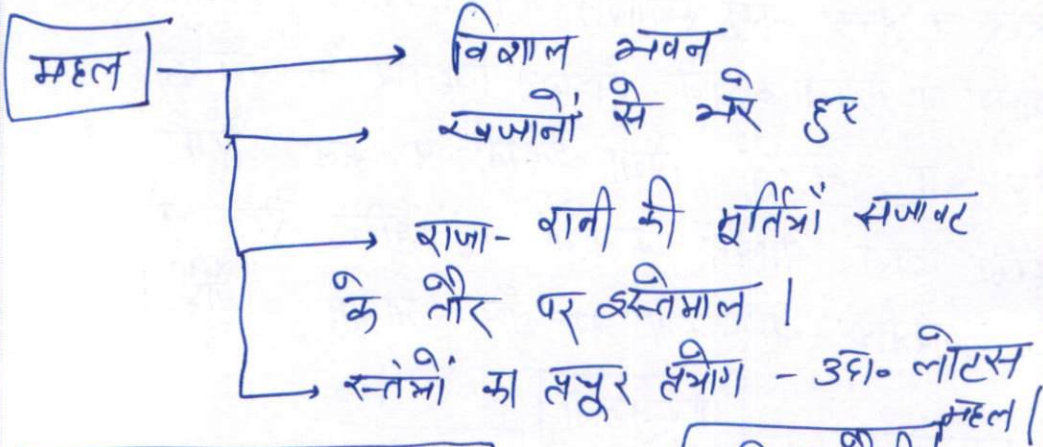 महल
विशाल भवन
खजानों से भरे हुए
राजा- रानी की मूर्तियाँ सजावट
के तौर पर इस्तेमाल।
स्तंभों का प्रचुर प्रयोग - उदा० लोटस
महल।